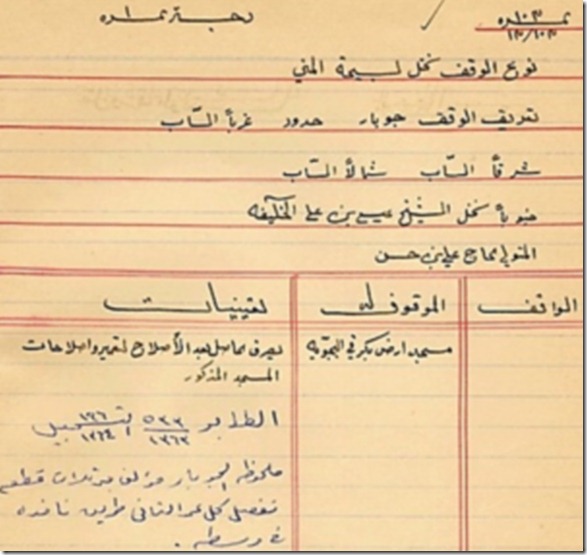 نمره
نوع الوقف نخل لسيمة المني
تعريف الوقف جوبار حدود غرباً السّاب
شرقاً السّاب شمالاً السّاب
جنوباً نخل الشيخ عيسى بن علي الخليفه
المتولي حاج علي بن حسن
الواقف الموقوف له تعيينات
مسجد ارض بكر في
يصرف حاصل بعد الأصلاح لتعمير واصلاحات
المسجد المذكور
الطابو ٥٣٣ التسجيل
ملحوظه الجوبار مؤلف من ثلاث قطع
تفصل كل عن الثاني طريق نافذه
في وسطه .